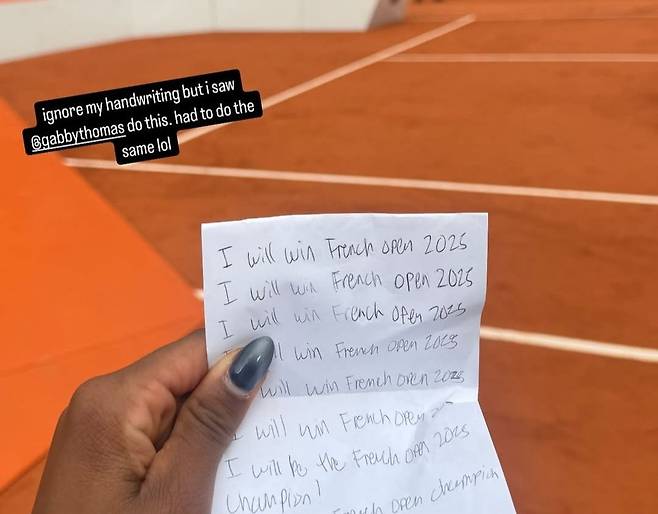 ignore my handwriting but i saw
@gabbythomas do this. had to do the
same lol
I will win French open 2025
I will win French open 2025
I will win French open 2025
I will win French open 2025
will win French open 2025
I will win French open
I will be the French open 2025
Champion!
French open champion